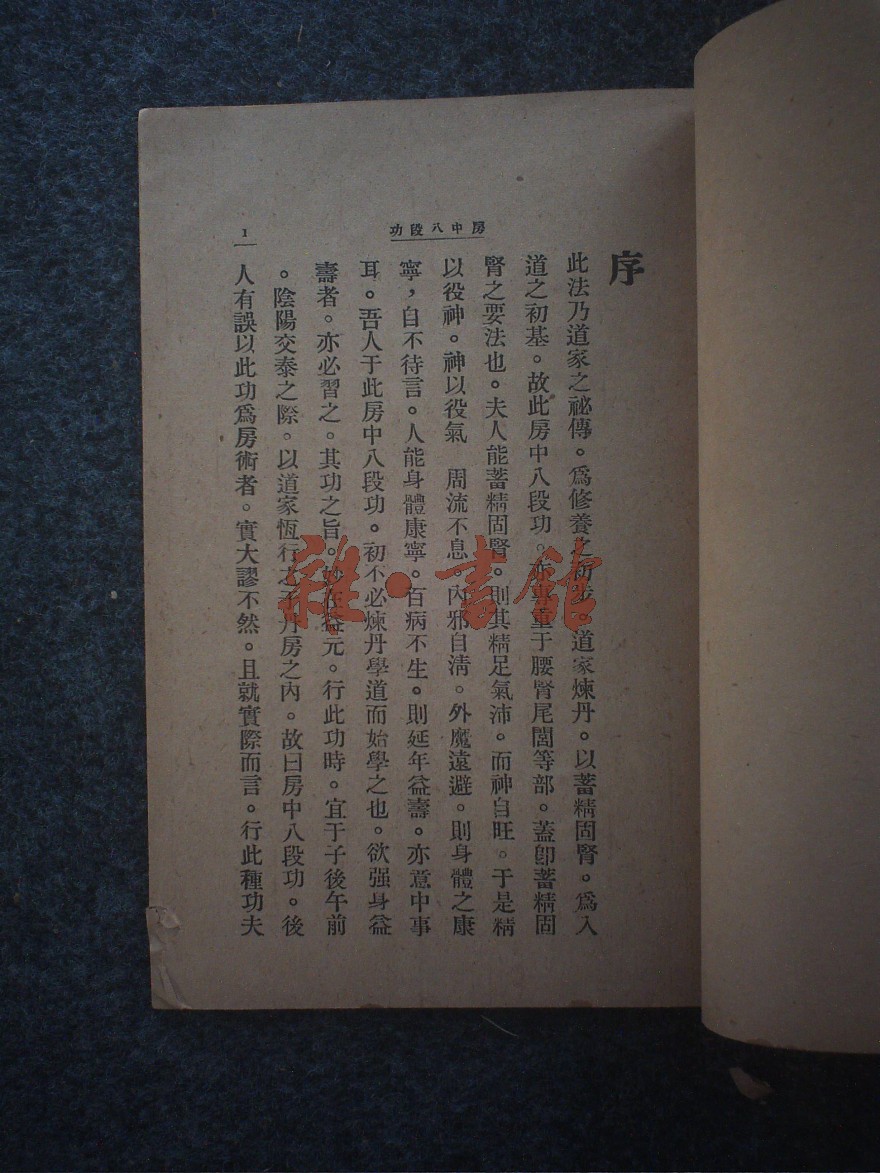 房中八段功
序
此法乃道家之祕傳。爲修養之初步。道家煉丹。以蓄精固腎。爲入
道之初基。故此房中八段功。亦專重于腰腎尾閭等部。蓋卽蓄精固
腎之要法也。夫人能蓄精固腎。則其精足氣沛。而神自旺。于是精
以役神。神以役氣 周流不息。內邪自淸。外魔遠避。則身體之康
寧，自不待言。人能身體康寧。百病不生。則延年益壽。亦意中事
耳。吾人于此房中八段功。初不必煉丹學道而始學之也。欲强身益
壽者。亦必習之。其功之旨。妙在益元。行此功時。宜于子後午前
。陰陽交泰之際。以道家恆行之于丹房之內。故曰房中八段功。後
人有誤以此功爲房術者。實大謬不然。且就實際而言。行此種功夫
1
雜·書館